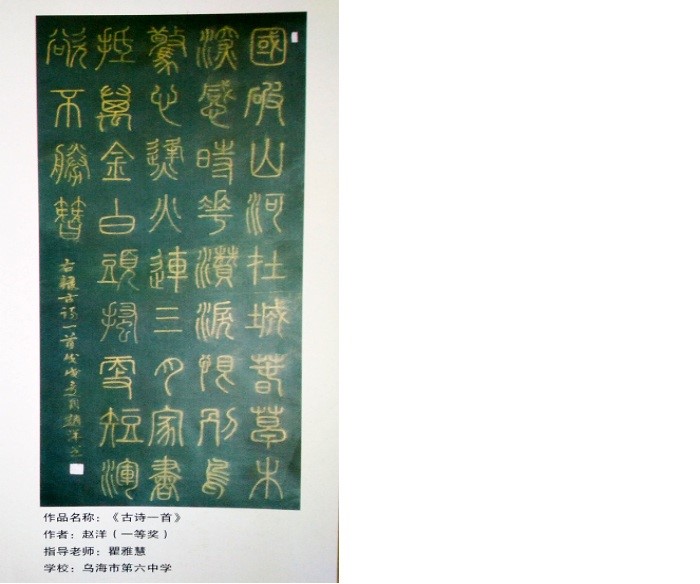 國破山河在城春草木
深感時花濺淚恨別鳥
驚心烽火連三月家書
抵萬金白頭搔更短渾
欲不勝簪
右錄古诗一首戊戌趙洋
作品名称：《古诗一首》
作者：赵洋（一等奖）
指导老师：瞿雅慧
学校：乌海市第六中学